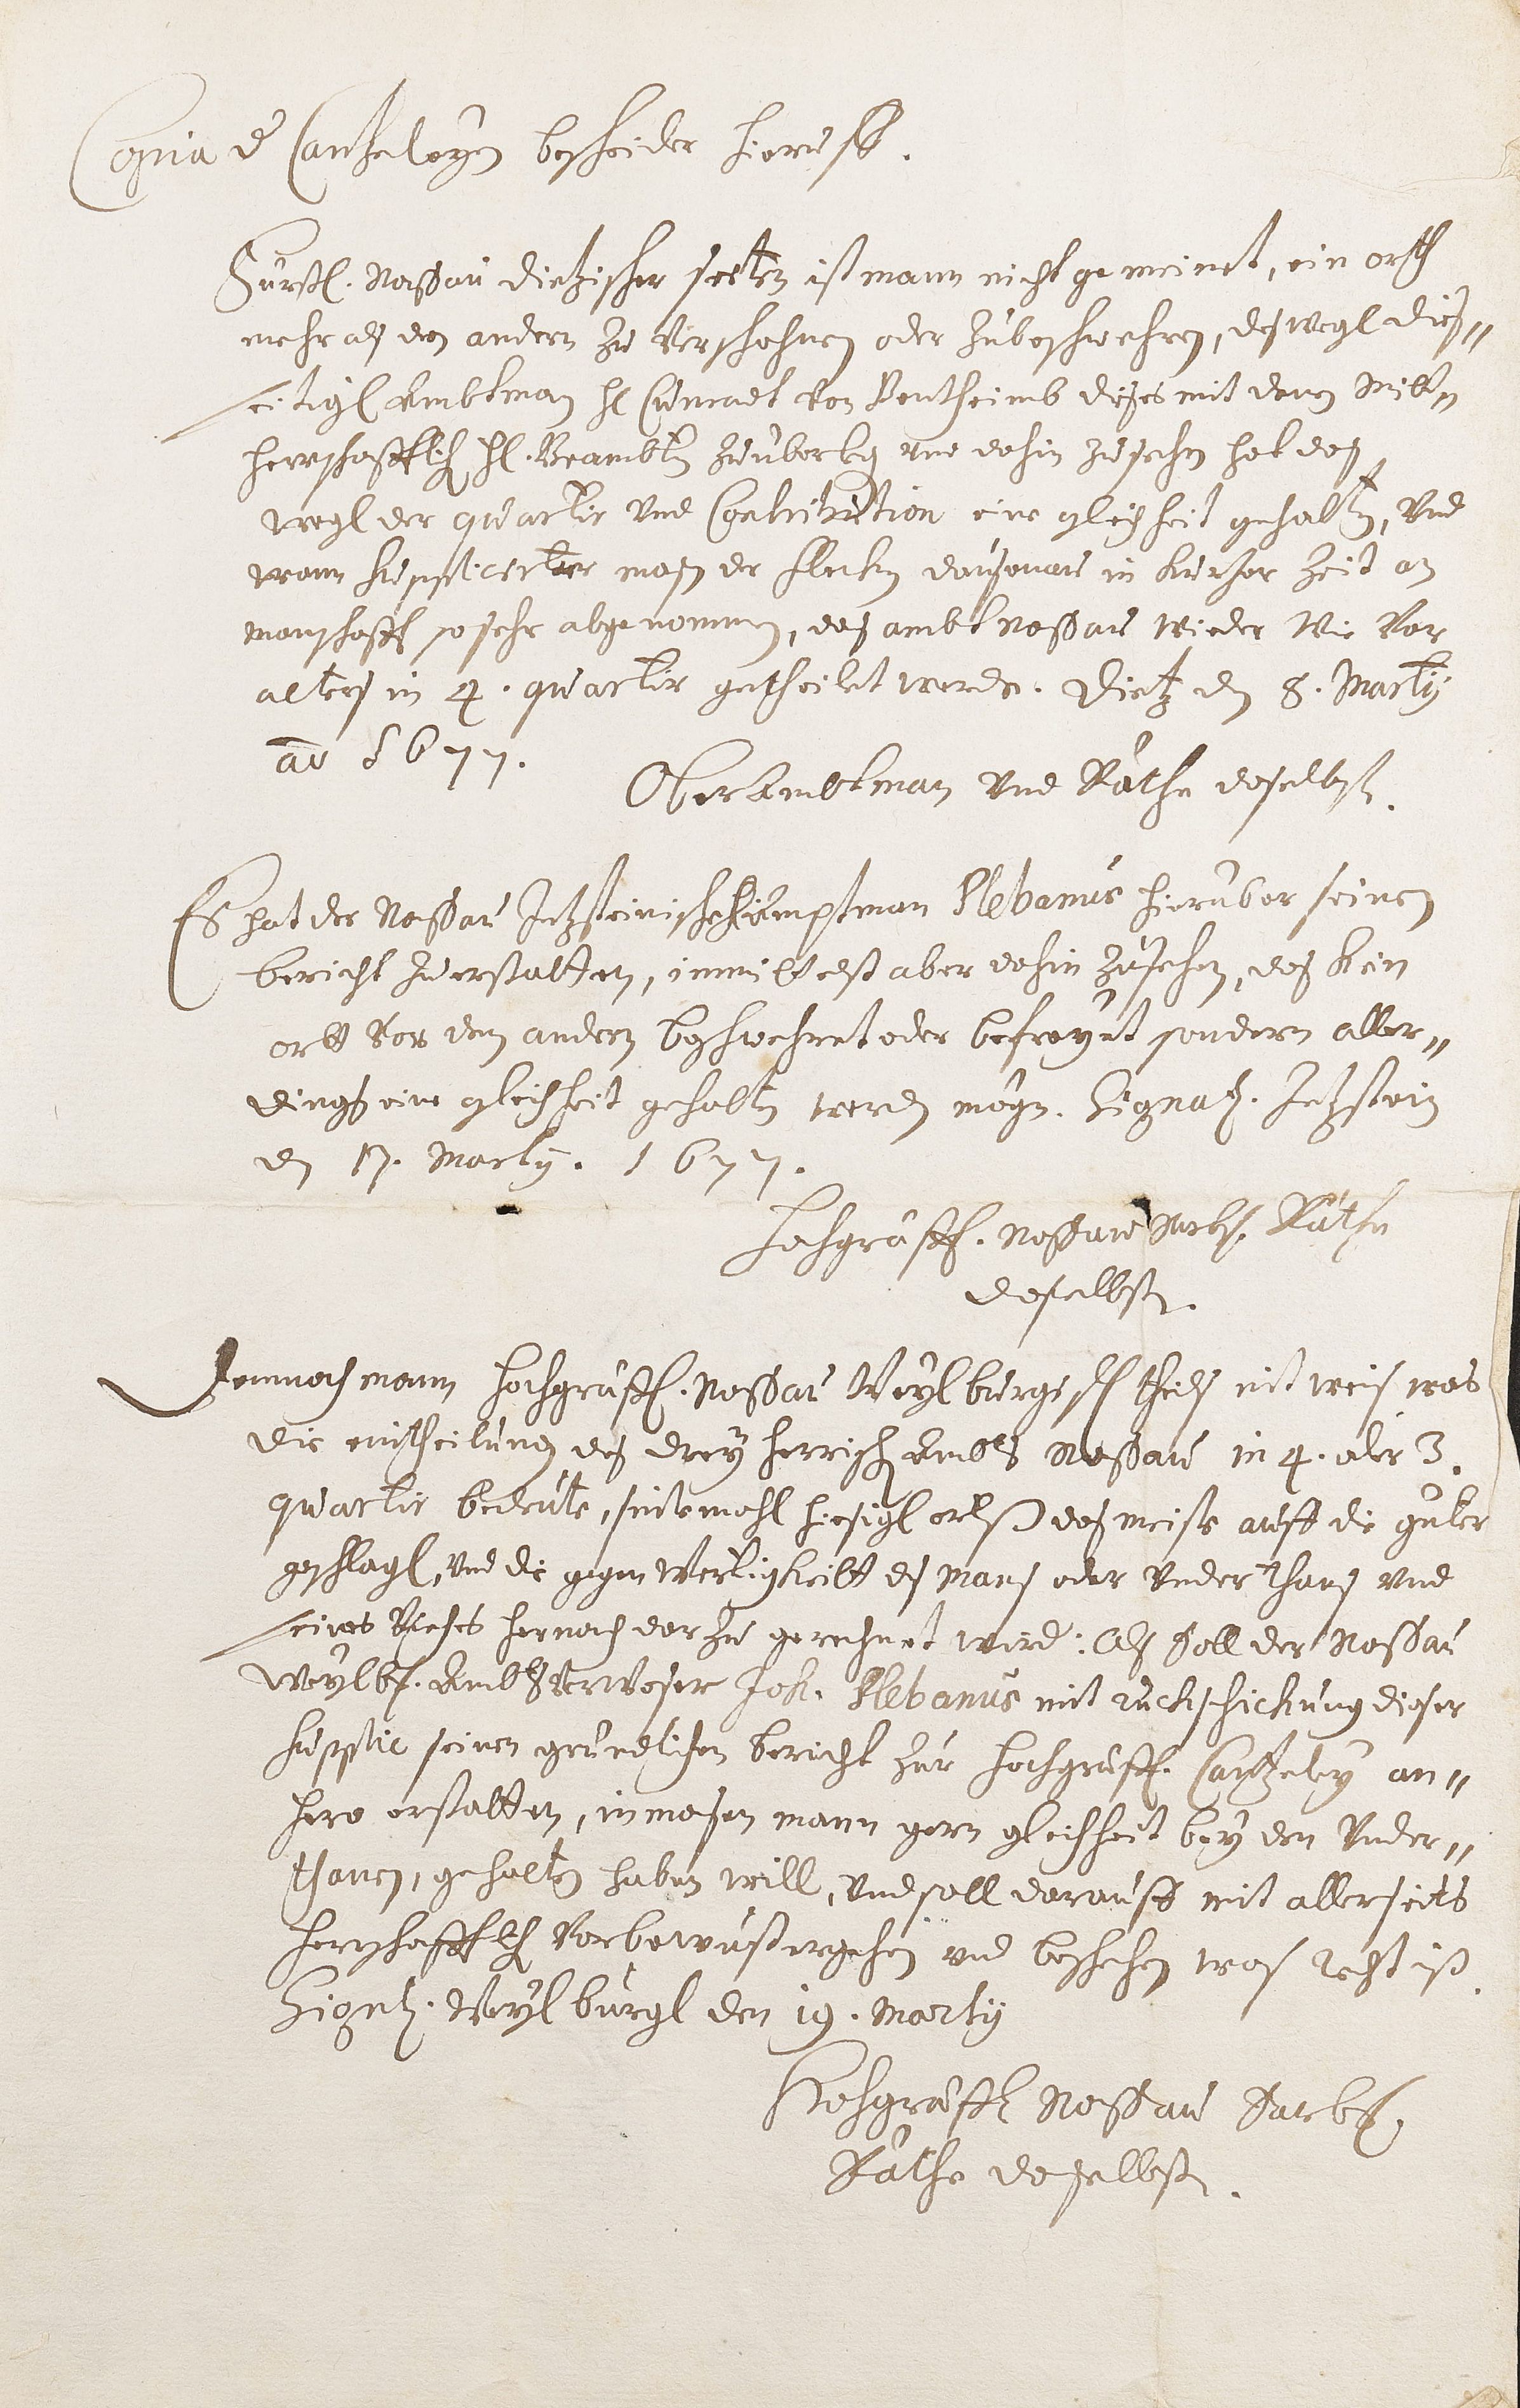 Copia d Cantzeleyen bescheider hieruff.
Fürstl. Naßau Dietzischer seiten ist mann nicht gemeinet, ein orth
mehr als den andern zu verschohnen oder zubeschwehren, deswegl dies„
seitigl Ambtman Hl von Bentheimb dieses mit denen Mitt„
herrschafftlich Hl. Beambtn zuüberlg und dahin zusehn hat das
wegl der quartir und Contribution eine gleichheit gehaltn, Und
wann supplicirter masn der flecken dausenau in kurtzer Zeit an
manschafft so sehr abgenommen, das ambt Naßau wieder Wie Vor
alters in 4. quartir getheilet werde. Dietz dn 8. Martij
ao 1677.
OberAmbtman Und Räthe daselbst.
Es hat der Naßau Itzsteinische Ampтman Plebanus hierüber seinen
bericht zuerstatten, inmittelst aber dahin zusehen, das kein
ortt Vor dem andern beschwehret oder befreyet sondern aller„
dings eine gleichheit gehaltn werdn mögn. Signat. Itzstein
dn 17. Martij. 1677.
Hochgräffl. Naßaw Sarb. Räthe
daselbst.
Demnach mann Hochgräffl. Naßau Weylburgischl theils nit weis was
die eintheilung des drey herrisch Ambts Naßau in 4. oder 3.
quartir bedeute, sintemahl hiesigl orths das meiste auff die güter
geschlagl, und die gegenwertigkeitt ds Mans oder Underthans und
seines Viehes hernach darzu gerechnet wird: Als soll der Naßau
Weylb. AmbtsVerweser Joh. Plebanus mit ruckschickung dieser
supplic seinen gründlichen bericht zur Hochgräffl. Cantzeley an„
hero erstatten, inmasen mann gern gleichheit bey den Under„
thanen, gehaltn haben will, und soll darauff mit allerseits
herrschafftlich Vorbewust ergehen und beschehen was recht ist.
Signt. Weylburgl den 19. Martij
Hochgräffl Naßau Sarb.
Räthe daselbst.